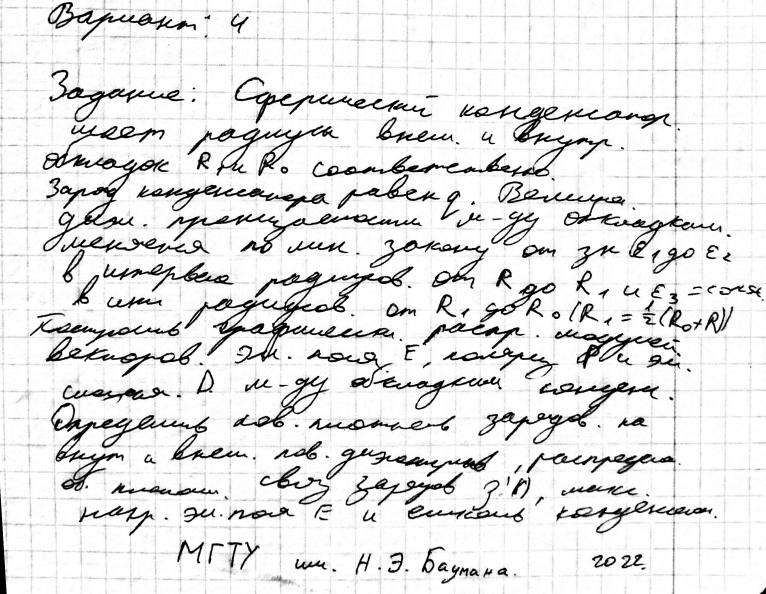 Вариант: 4
Задание: Сферический конденсатор.
имеет радиусы внеш. и внутр.
обкладок R и R₀ соответственно.
Заряд конденсатора равен q. Величина.
диэл. проницаемости м-ду обкладкам.
меняется по лин. закону от зн ε₁ до ε₂
в интервале радиусов. от R до R₁ и ε₃ = const.
в инт радиусов. от R₁ до R₀ (R₁ = ½(R₀+R))
Построить графически. распр. модулей
векторов. эл. поля E, поляриз P и эл.
смещен. D м-ду обкладкам конден.
Определить пов. плотность зарядов. на
внут и внеш. пов. диэлектрика, распредел.
об. плотн. связ зарядов ρ'(r), макс.
напр. эл. поля E и емкость конденсат.
МГТУ им. Н.Э. Баумана. 2022.